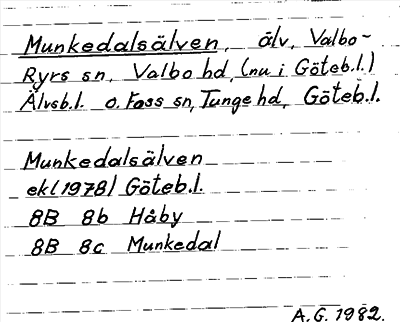 Munkedalsälven, älv, Valbo-
Ryrs sn, Valbo hd, (nu i Göteb.l.)
Älvsb.l. o. Foss sn, Tunge hd, Göteb.l.
Munkedalsälven
ek(1978) Göteb.l.
8B 8b Håby
8B 8c Munkedal
A.G. 1982.